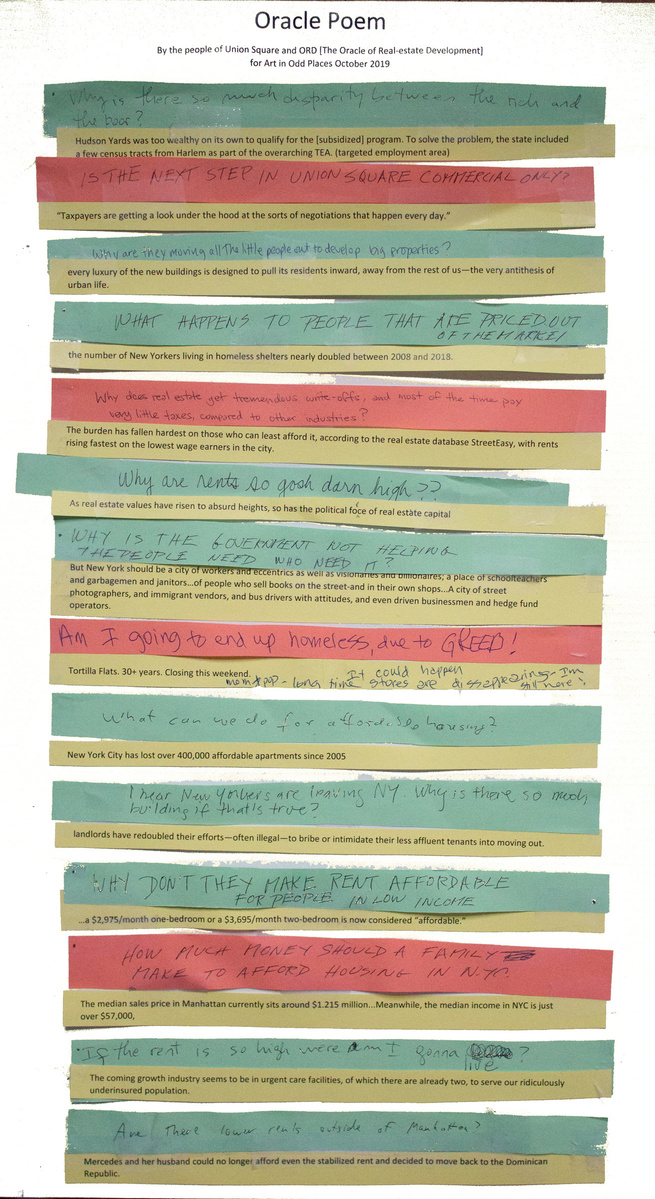 Oracle Poem
By the people of Union Square and ORD [The Oracle of Real-estate Development]
for Art in Odd Places October 2019
Why is there so much disparity between the rich and
the poor?
Hudson Yards was too wealthy on its own to qualify for the [subsidized] program. To solve the problem, the state included
a few census tracts from Harlem as part of the overarching TEA. (targeted employment area)
IS THE NEXT STEP IN UNION SQUARE COMMERCIAL ONLY?
“Taxpayers are getting a look under the hood at the sorts of negotiations that happen every day.”
Why are they moving all The little people out to develop big properties?
every luxury of the new buildings is designed to pull its residents inward, away from the rest of us—the very antithesis of
urban life.
WHAT HAPPENS TO PEOPLE THAT ARE PRICED OUT
OF THE MARKET
the number of New Yorkers living in homeless shelters nearly doubled between 2008 and 2018.
Why does real estate get tremendous write-offs, and most of the time pay
very little taxes, compared to other industries?
The burden has fallen hardest on those who can least afford it, according to the real estate database StreetEasy, with rents
rising fastest on the lowest wage earners in the city.
Why are rents so gosh darn high??
As real estate values have risen to absurd heights, so has the political foce of real estate capital
WHY IS THE GOVERNMENT NOT HELPING
THE PEOPLE NEED WHO NEED IT?
But New York should be a city of workers and eccentrics as well as visionaries and billionaires; a place of schoolteachers
and garbagemen and janitors...of people who sell books on the street-and in their own shops...A city of street
photographers, and immigrant vendors, and bus drivers with attitudes, and even driven businessmen and hedge fund
operators.
Am I going to end up homeless, due to GREED!
Tortilla Flats. 30+ years. Closing this weekend. It could happen
mom & pop - long time stores are dissappearing - I'm
still here!
What can we do for affordable housing?
New York City has lost over 400,000 affordable apartments since 2005
I hear New Yorkers are leaving NY. Why is there so much
building if that's true?
landlords have redoubled their efforts—often illegal—to bribe or intimidate their less affluent tenants into moving out.
WHY DON'T THEY MAKE RENT AFFORDABLE
FOR PEOPLE IN LOW INCOME
...a $2,975/month one-bedroom or a $3,695/month two-bedroom is now considered “affordable.”
HOW MUCH MONEY SHOULD A FAMILY
MAKE TO AFFORD HOUSING IN N.Y.C.
The median sales price in Manhattan currently sits around $1.215 million...Meanwhile, the median income in NYC is just
over $57,000,
If the rent is so high were am I gonna live?
The coming growth industry seems to be in urgent care facilities, of which there are already two, to serve our ridiculously
underinsured population.
Are There lower rents outside of Manhattan?
Mercedes and her husband could no longer afford even the stabilized rent and decided to move back to the Dominican
Republic.